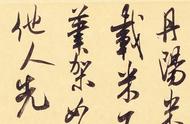 丹陽米
載米百
筆架如
他人先